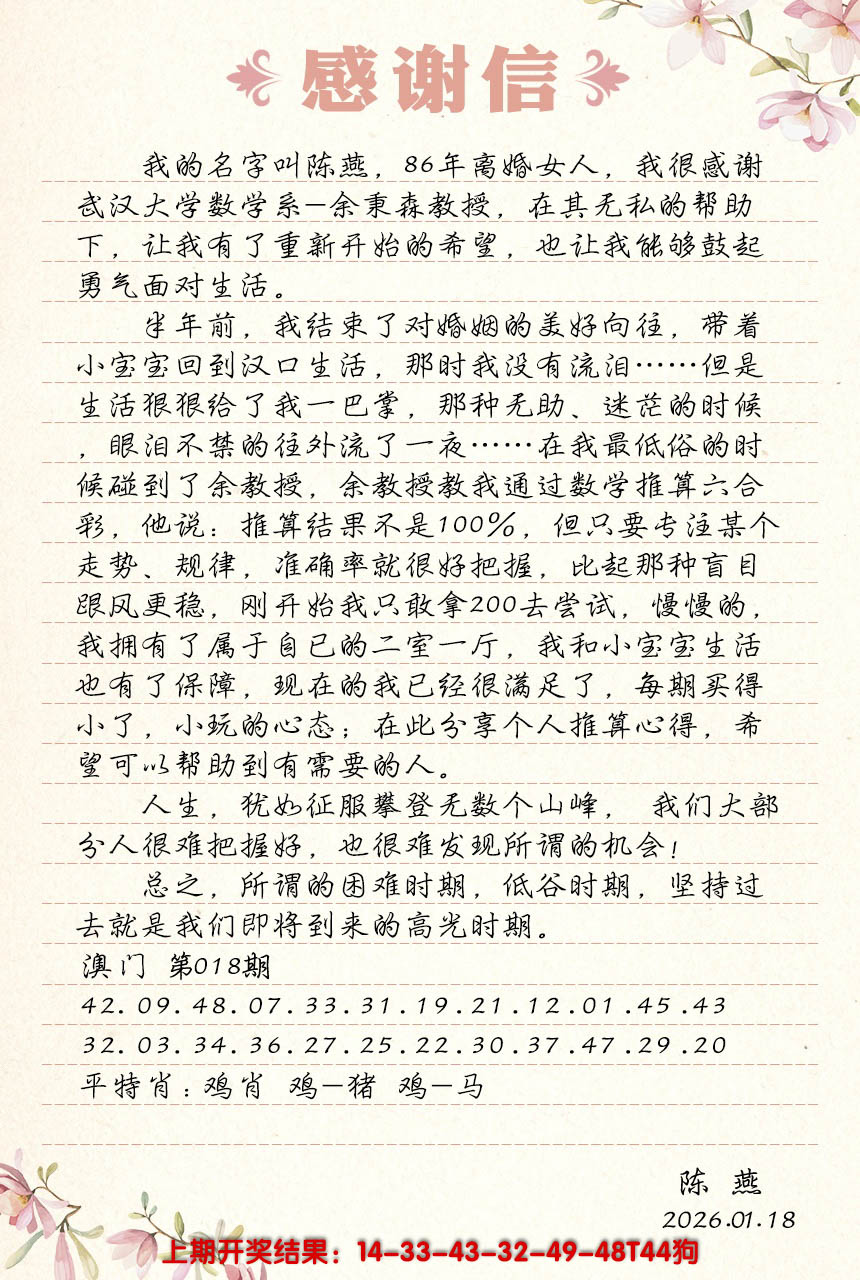 感谢信
我的名字叫陈燕，86年离婚女人，我很感谢
武汉大学数学系—余秉森教授，在其无私的帮助
下，让我有了重新开始的希望，也让我能够鼓起
勇气面对生活。
半年前，我结束了对婚姻的美好向往，带着
小宝宝回到汉口生活，那时我没有流泪……但是
生活狠狠给了我一巴掌，那种无助、迷茫的时候
，眼泪不禁的往外流了一夜……在我最低俗的时
候碰到了余教授，余教授教我通过数学推算六合
彩，他说：推算结果不是100%，但只要专注某个
走势、规律，准确率就很好把握，比起那种盲目
跟风更稳，刚开始我只敢拿200去尝试，慢慢的，
我拥有了属于自已的二室一厅，我和小宝宝生活
也有了保障，现在的我已经很满足了，每期买得
小了，小玩的心态；在此分享个人推算心得，希
望可以帮助到有需要的人。
人生，犹如征服攀登无数个山峰， 我们大部
分人很难把握好，也很难发现所谓的机会！
总之，所谓的困难时期，低谷时期，坚持过
去就是我们即将到来的高光时期。
澳门 第018期
42.09.48.07.33.31.19.21.12.01.45.43
32.03.34.36.27.25.22.30.37.47.29.20
平特肖：鸡肖 鸡—猪 鸡—马
陈 燕
2026.01.18
上期开奖结果：14-33-43-32-49-48T44狗